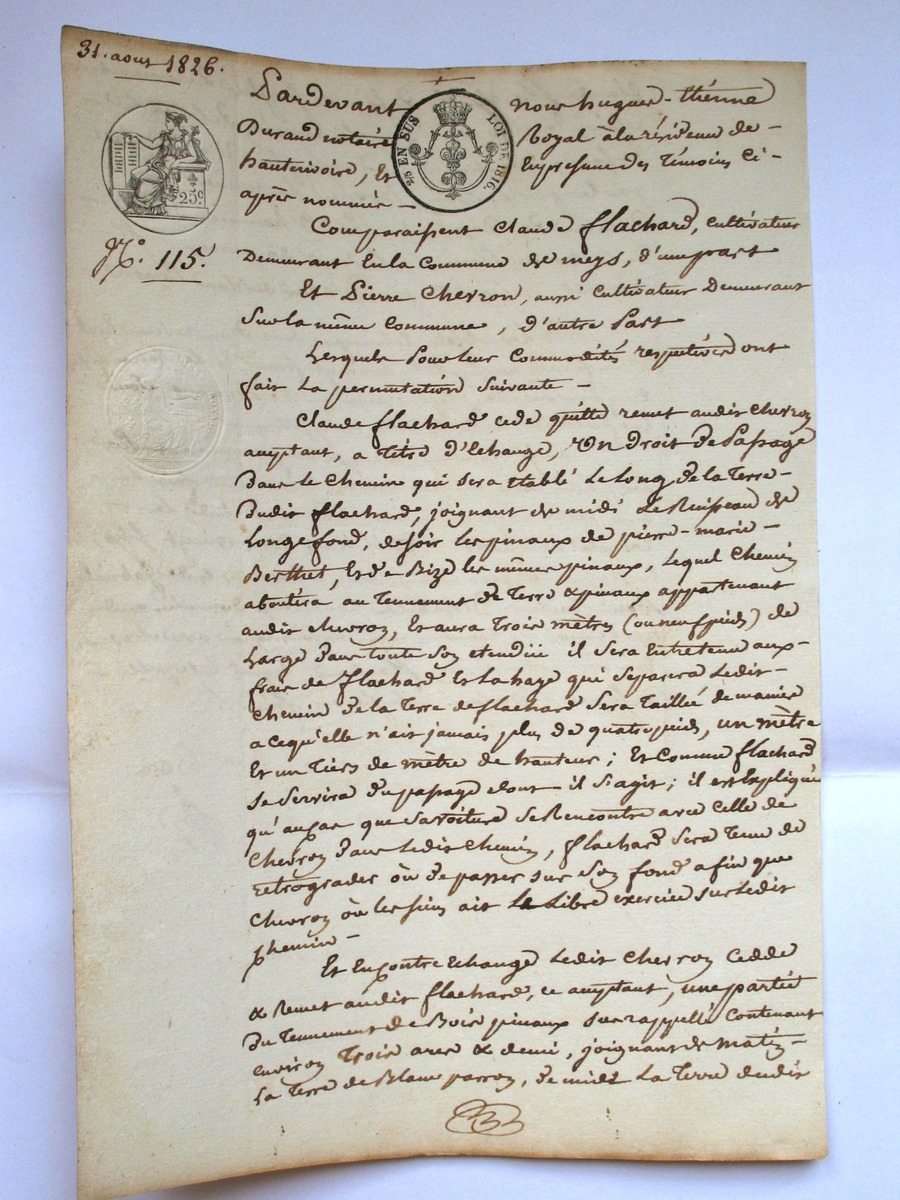 31. aout 1826.
Pardevant nous hugues-étienne
Durand notaire Royal à la résidence de-
hauterivoire, Et En présence des Témoins Ci-
après nommés-
25 EN SUS LOI DE 1816.
25c
N.° 115.
Comparaissent Claude flachard, cultivateur
Demeurant En la Commune de meys, d'une part
Et Pierre Chevron, aussi Cultivateur Demeurant
Sur la même Commune, d'autre Part
Lesquels Pour leur Commodités respectives ont
fait La permutation Suivante-
Claude flachard cede quitte remet audit Chevron
acceptant, a Titre d'Echange, Un Droit de Passage
Dans le Chemin qui Sera établi Le Long de la Terre-
Dudit flachard, joignant de midi Le Ruisseau de
Longefond, de soir les pinaux de pierre-marie-
Berthet, Et de Bize les mêmes pinaux, Lequel Chemin
aboutira au Tennement de Terre & pinaux appartenant
audit Chevron, Et aura Trois mètres (ou neuf pieds) de
Large Dans toute Son etendue il Sera Entretenu aux-
frais de Flachard Et la haye qui Separera Ledit-
Chemin de la Terre de flachard Sera Taillée de maniere
a ce qu'elle n'ait jamais plus de quatre pieds, un mètre
Et un Tiers de mètre de hauteur; Et Comme flachard
Se Servira du passage dont il S'agit; il est Expliqué
qu'au cas que Sa voiture Se Rencontre avec Celle de
Chevron Dans Ledit Chemin, flachard Sera Tenu de
retrograder où de passer sur Son fond afin que
Chevron où les siens ait Le Libre exercice sur Ledit
Chemin-
Et En contre Echange Ledit Chevron Cedde
& Remet audit flachard, ce acceptant, une partie
Du Tennement de Bois pinaux Sus rappellé Contenant
environ Trois ares & demi, joignant de matin-
La Terre de Blanc parron, de midi La Terre dudit